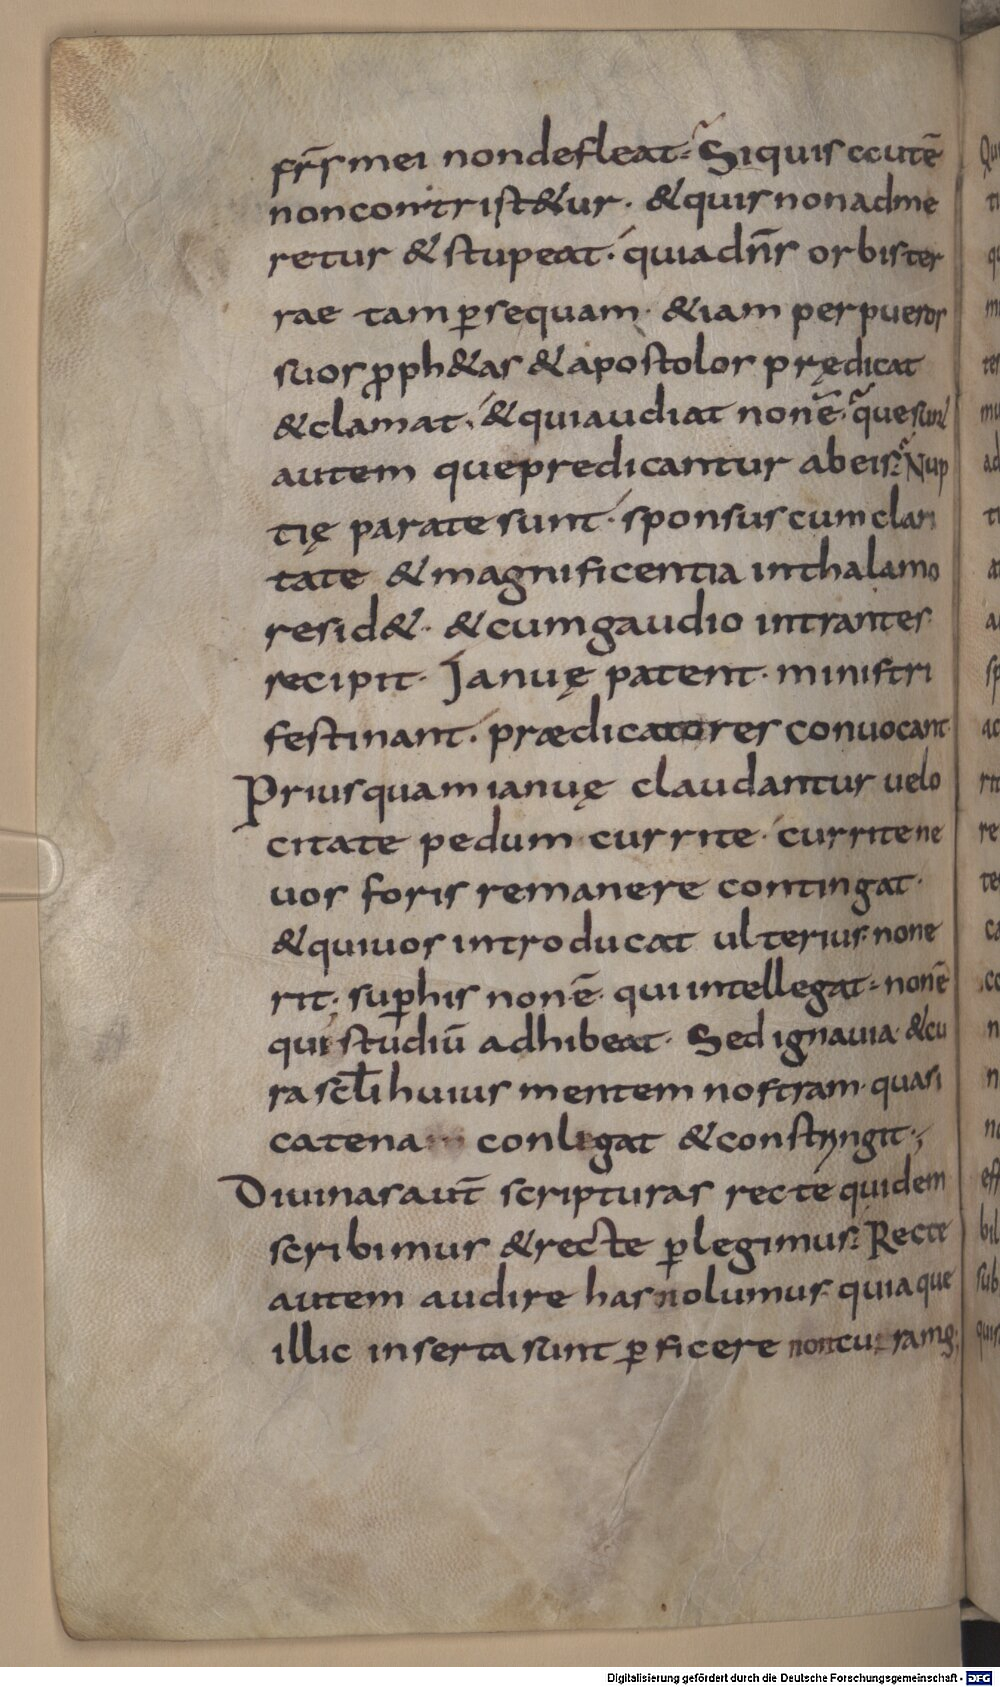 fr̄s mei non defleat. Siquis autē
non contrist&ur. & quis non adme
retur & stupeat. quia dn̄s orbis ter
rae tam p̱sequam. &iam per pueros
suos p̱ph&as & apostolos prędicat
& clamat. & qui audiat non ē. que sunt
autem que predicantur ab eis. Nup
tię parate sunt. sponsus cum clari
tate & magnificentia in thalamo
resid&. & cum gaudio intrantes
recipit. Ianuę patent. ministri
festinant. prædicatores convocant
Priusquam ianuę claudantur uelo
citate pedum currite. currite ne
uos foris remanere contingat.
& qui uos introducat ulterius. non e
rit. sup̱ his non ē. qui intellegat. non ē
qui studiū adhibeat. Sed ignauia & cu
ra scl̄i huius mentem nostram. quasi
catena conligat & constringit.,
Diuinas aut̄ scripturas recte quidem
scribimus & recte p̱legimus. Recte
autem audire has nolumus. quia que
illic inserta sunt p̱ficere non curam;
Digitalisierung gefördert durch die Deutsche Forschungsgemeinschaft - DFG